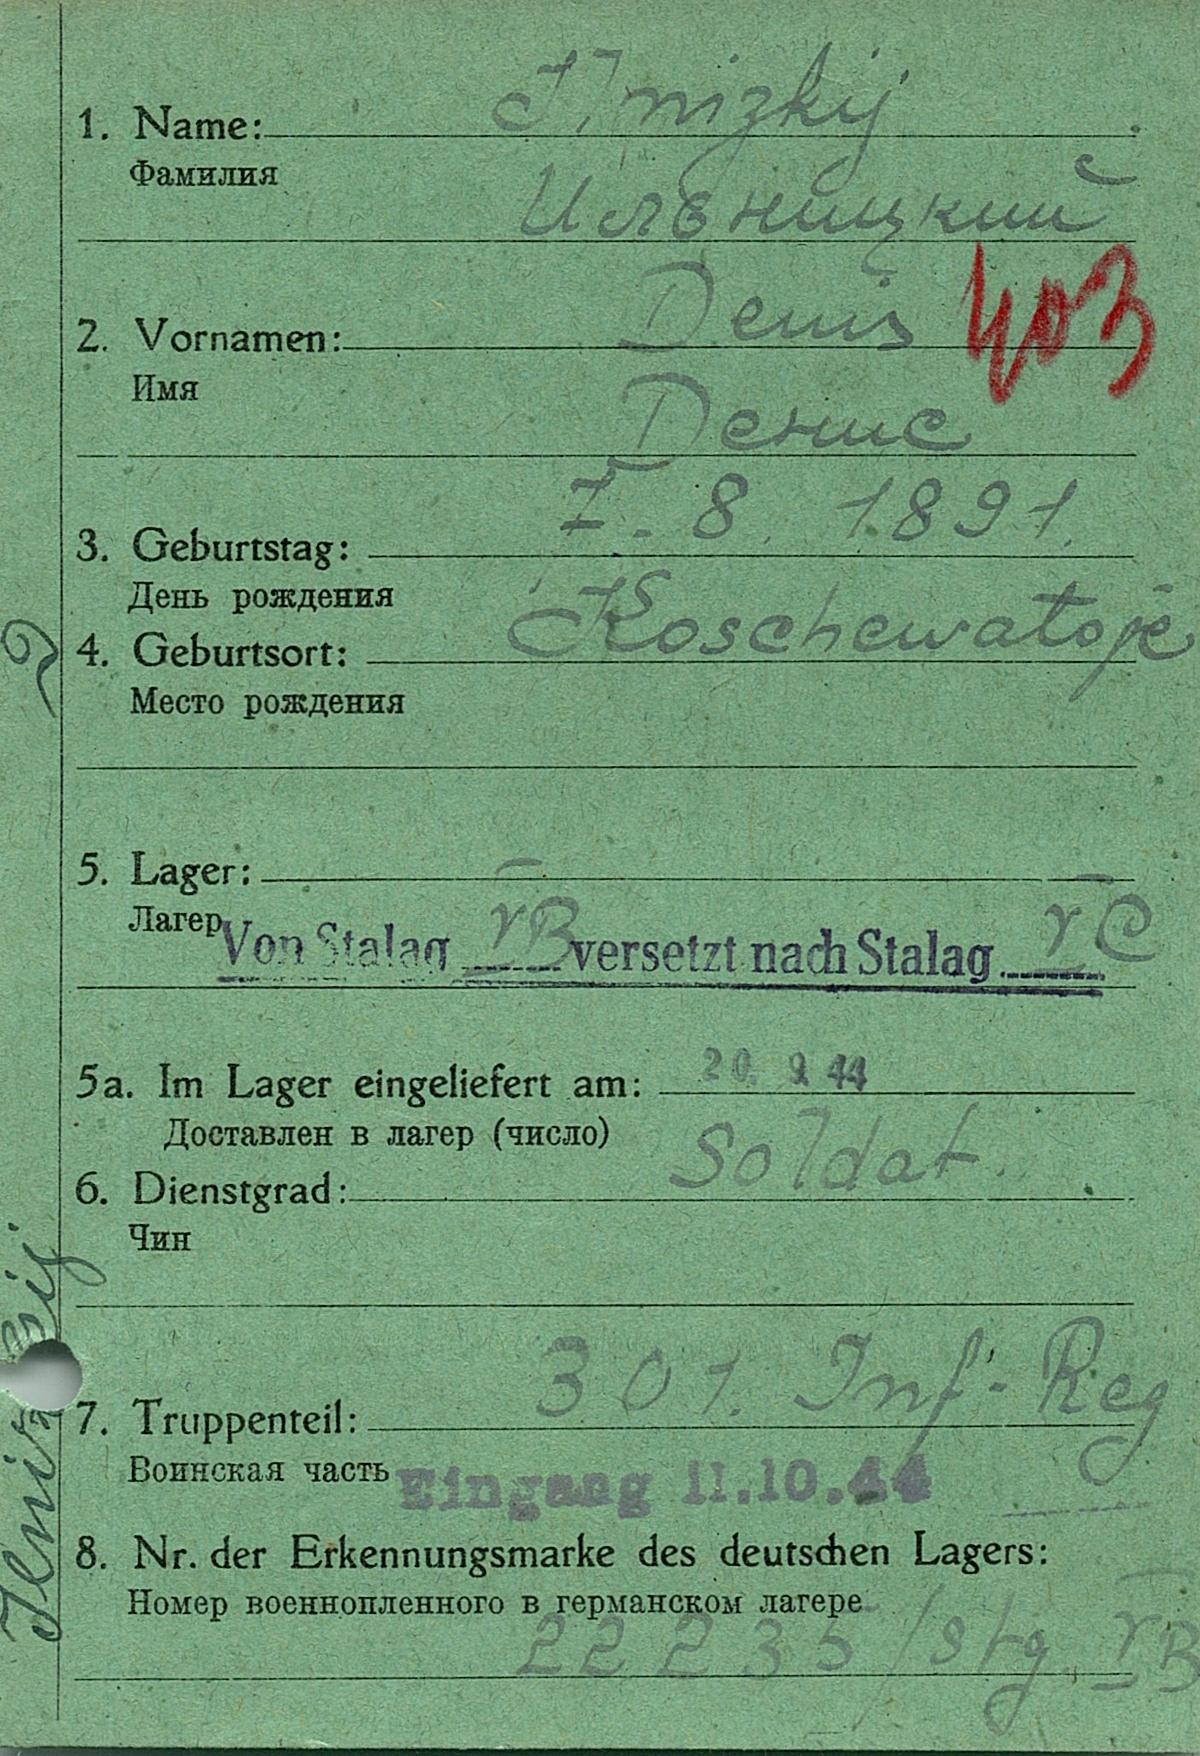 1. Name: Ilnizkij
Фамилия
Ильницкий
2. Vornamen: Denis
403
Имя
Денис
3. Geburtstag: 7. 8. 1891.
День рождения
4. Geburtsort: Koschewatoje
Место рождения
5. Lager:
Лагер
Von Stalag VB versetzt nach Stalag VC
5a. Im Lager eingeliefert am: 20. 9. 44
Доставлен в лагер (число)
6. Dienstgrad: Soldat.
Чин
7. Truppenteil: 301. Inf.-Reg
Воинская часть
Eingang 11.10.44
8. Nr. der Erkennungsmarke des deutschen Lagers:
Номер военнопленного в германском лагере
22235/Stg VB
Ilnizkij